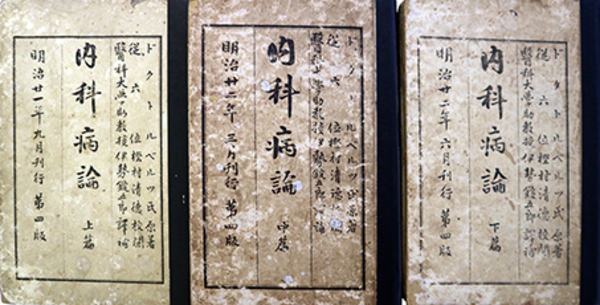 ドクトルベルツ氏原著
従六位樫村清徳校閲
醫科大学助教授伊勢錠五郎譯補
内科病論 上篇
明治廿一年九月刊行 第四版
ドクトルベルツ氏原著
従六位樫村清徳校閲
醫科大学助教授伊勢錠五郎譯補
内科病論 中篇
明治廿二年三月刊行 第四版
ドクトルベルツ氏原著
従六位樫村清徳校閲
醫科大学助教授伊勢錠五郎譯補
内科病論 下篇
明治廿二年六月刊行 第四版